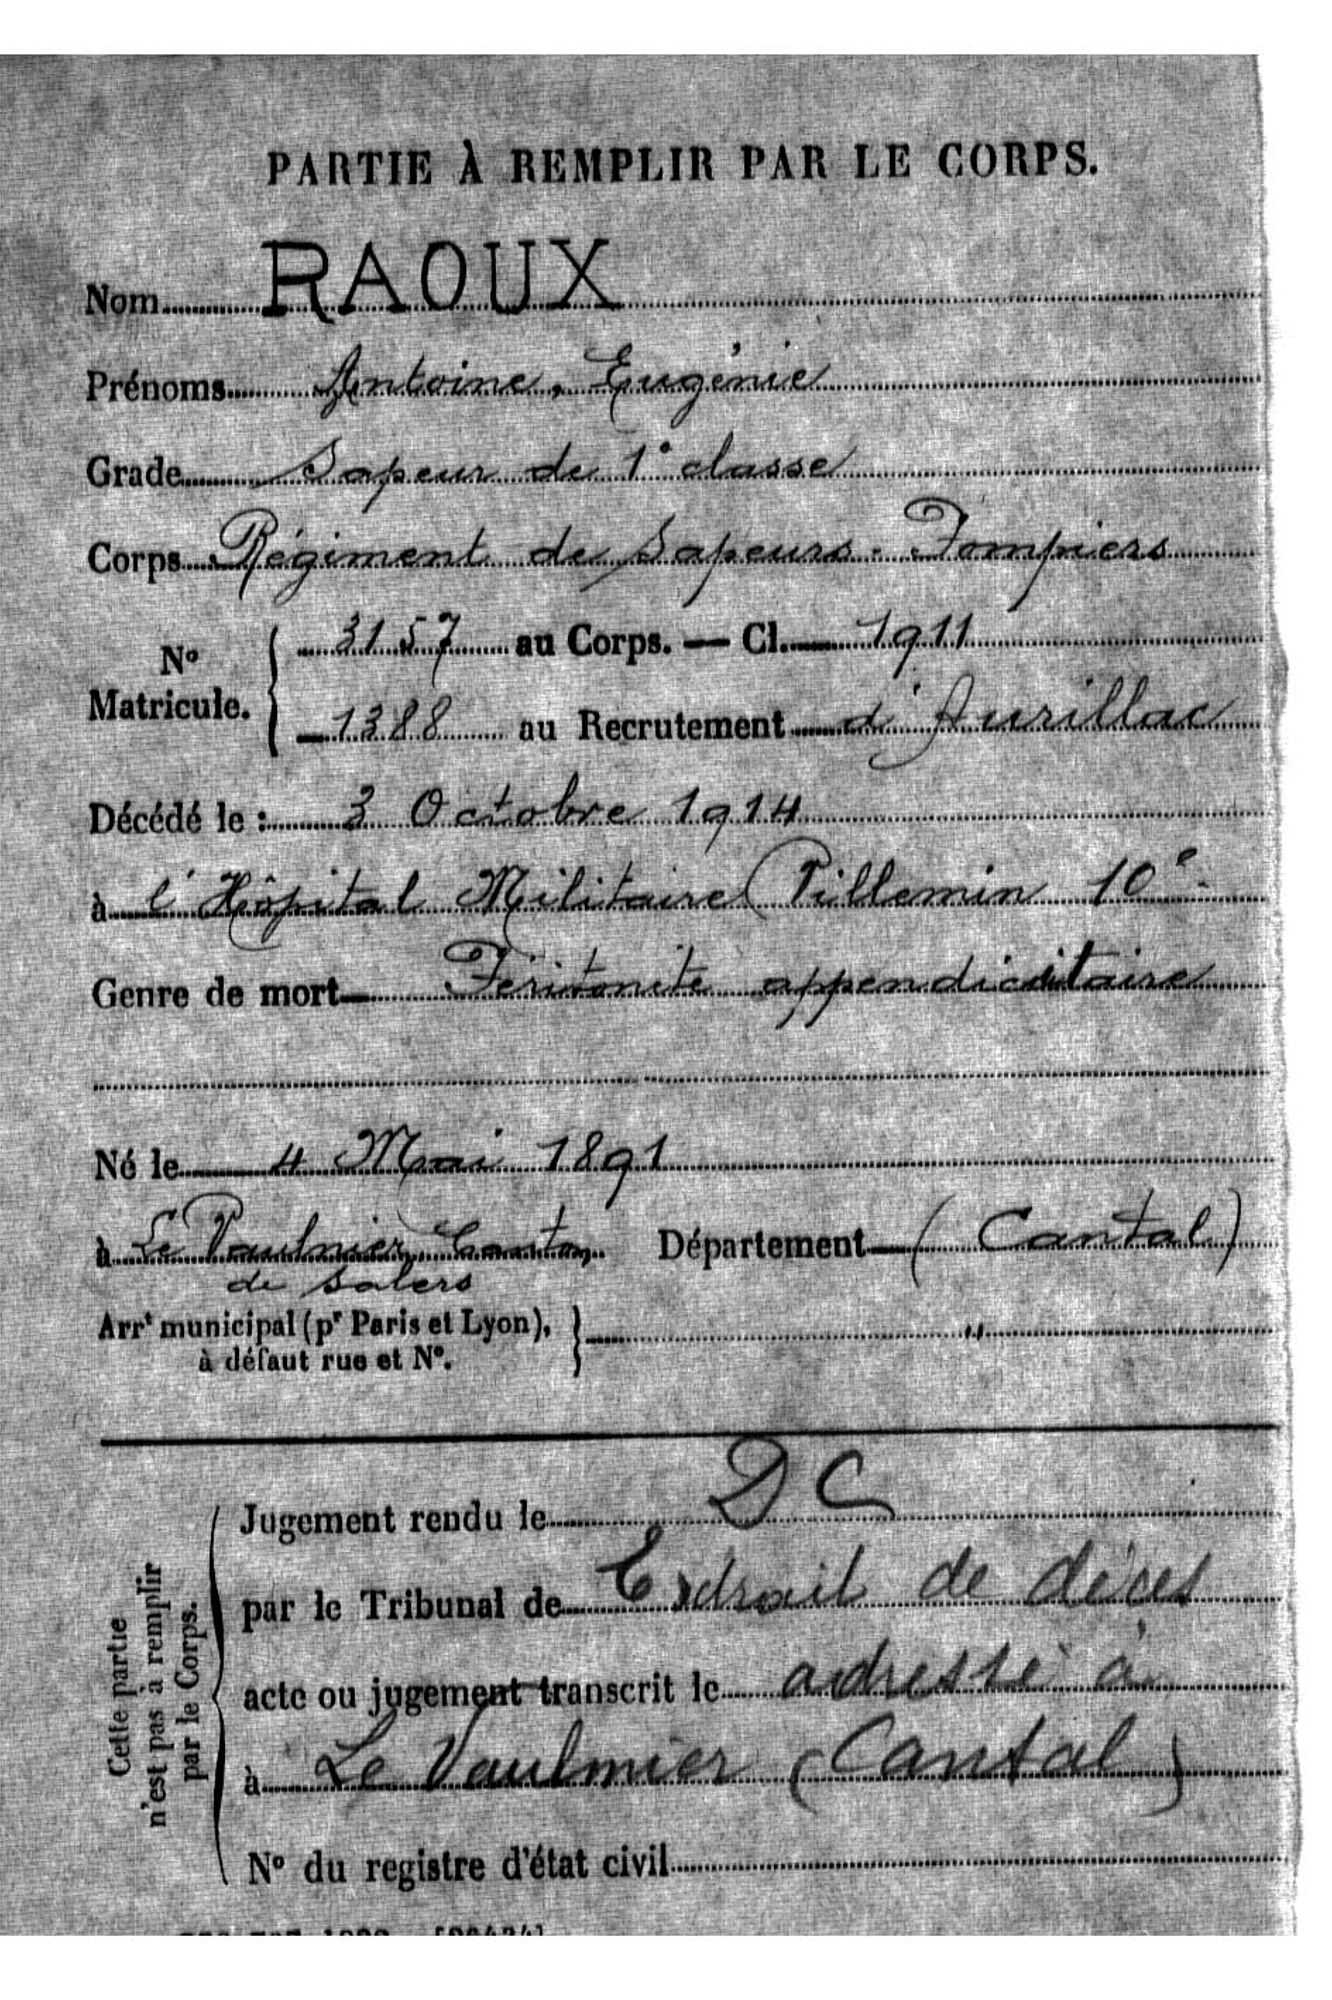 PARTIE À REMPLIR PAR LE CORPS.
Nom RAOUX
Prénoms Antoine, Eugénie
Grade Sapeur de 1e classe
Corps Régiment de Sapeurs-Pompiers
N° Matricule. 3157 au Corps. — Cl. 1911
1388 au Recrutement d'Aurillac
Décédé le : 3 Octobre 1914
à l'Hôpital Militaire Villemin 10e
Genre de mort Péritonite appendicitaire
Né le 4 Mai 1891
à Le Vaulmier Canton de Salers Département (Cantal)
Arrt municipal (pr Paris et Lyon), à défaut rue et N°. "
Cette partie n'est pas à remplir par le Corps.
Jugement rendu le DC
par le Tribunal de Extrait de décès
acte ou jugement transcrit le adressé à
à Le Vaulmier (Cantal)
N° du registre d'état civil